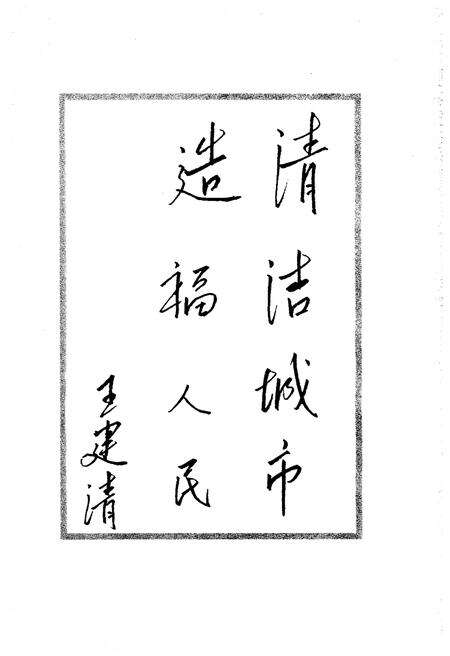 清洁城市
造福人民
王建清